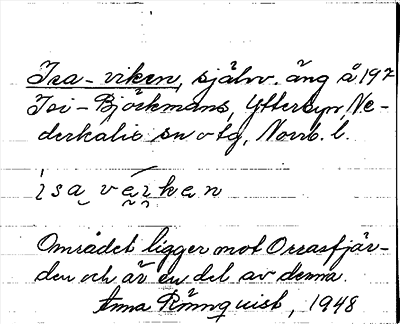 Isa-viken, självv. äng å 197
Isi-Björkmans, Ytterbyn, Ne-
derkalix sn o tg, Norrb. l.
isa vei̯kən
Området ligger mot Orrasfjär-
den och är en del av denna.
Anna Rönnquist, 1948